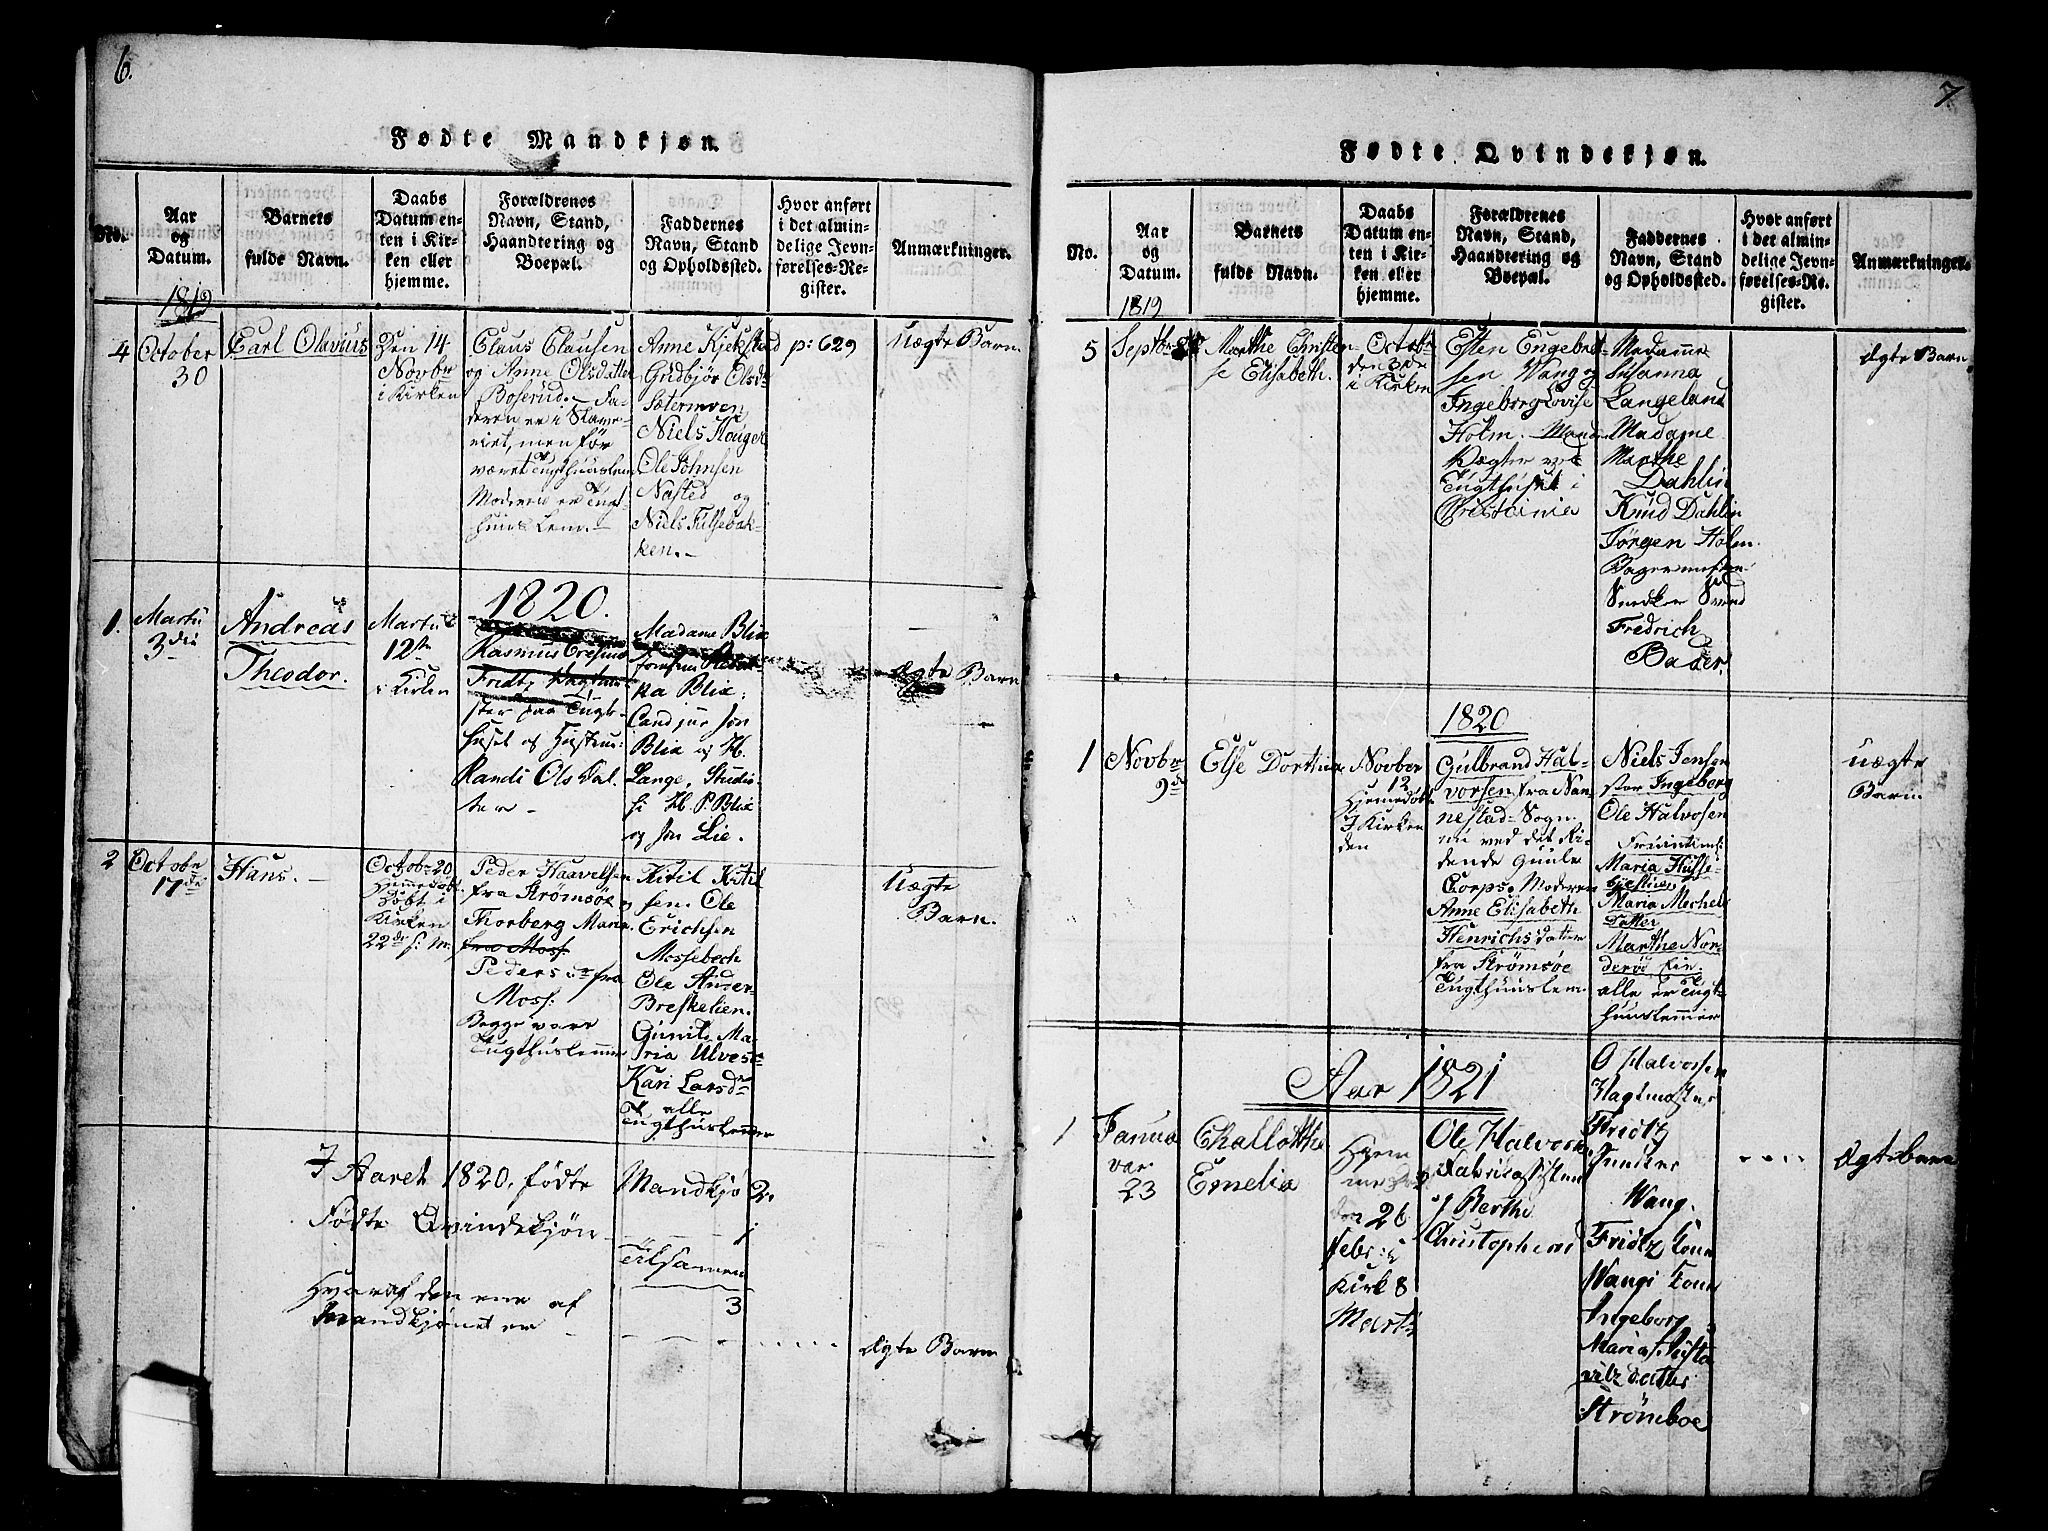 6.
Fødte Mandkjøn.
No.
Aar
og
Datum.
Barnets
fulde Navn.
Daabs
Datum en-
ten i Kir-
ken eller
hjemme.
Forældrenes
Navn, Stand,
Haandtering og
Boepæl.
Faddernes
Navn, Stand
og Opholdssted.
Hvor anført
i det almin-
delige Jevn-
førelses-Re-
gister.
Anmærkninger.
1819
4
October
30
Carl Olavius
Den 14
Novbr
i Kirken
Claus Clausen
og Anne Olsdatter
Boserud. Fa-
deren er i Slave-
riet, men før
været Tugthuuslem
Moderen er Tugt-
huus Lem.
Anne Kjekstad
Gudbjør Olsdr
Sætermoen
Niels Houger
Ole Johnsen
Nøsted og
Niels Fulsebak-
ken.
p: 629
Uægte Barn
1820.
1.
Martii
3die
Andreas
Theodor.
Martii
12te
i Kirken
Rasmus
ster paa Tugt-
huset og Hustrue
Randi Olsdat-
ter
Madame Blix
Jomfrue
ka Blix,
Cand jur Jon
Blix og H.
Lange, Studio-
si H. P. Blix
og Jon Lie.
Ægte Barn
2
Octobr
17de
Hans.
Octobr 20
Hjemmedøbt
Døbt i
Kirken
22de s: M.
Peder Haavelsen
fra Strømsøe og
Thorberg Marie
fra Moss
Pedersdr fra
Moss.
Begge vare
Tugthuslemmer
Kitil Kitil
sen. Ole
Erichsen
Mossebech
Ole Ander-
Breskelien.
Gunil Ma-
ria Ulvest
Kari Larsdr
alle
Tugthuslemmer
Uægte
Barn.
I Aaret 1820. fødte Mandkjø 2.
Fødte Qvindekjøn 1
Tilsamen
3
Hvoraf den ene af
Mandkjønet er
Ægte Barn
7
Fødte Qvindekjøn.
No.
Aar
og
Datum.
Barnets
fulde Navn.
Daabs
Datum en-
ten i Kir-
ken eller
hjemme.
Forældrenes
Navn, Stand,
Haandtering og
Boepæl.
Faddernes
Navn, Stand
og Opholdssted.
Hvor anført
i det almin-
delige Jevn-
førelses-Re-
gister.
Anmærkninger.
1819
5
Septbr
Marthe Christen-
se Elisabeth.
Octobr
den 3die
i Kirken
Esten Engebret-
sen Wang og
Ingeborg Lovise
Holm. Manden
Vægter ved
Tugthuset i
Christiania
Madamme
Susanna
Langeland
Madame
Marthe
Dahlin
Knud Dahlin
Jørgen Holm
Bagermester
Snedker Svend
Fredrich
Bader.
Ægte Barn
1820
1
Novbr
9de
Else Dorthea
Novber
12
Hjemedøbt
I Kirken
den
Gulbrand Hal-
vorsen fra Nan-
nestad Sogn.
nu ved det Ri-
dende Guule
Corps. Moderen
Anne Elisabeth
Henrichsdatter
fra Strømsøe
Tugthuuslem.
Niels Jensen
Ingeborg
Ole Halvosen
Maria
Maria Michels
Datter
Marthe Nor
alle er Tugt-
huuslemmer
Uægte
Barn.
Aar 1821
1
Janua
var
23
Challotthe
Emelia
Hjem
den 26
Febr: i
Kirk 8
Marts
Ole Halvorsen
og Berthe
Christophersd
O Halvosen
Vagtmester
Friørtz
Junker
Wang.
Friørtz Kone
Wangs Kone
Ingeborg
Marias
datter
Strømsoe
Ægte barn